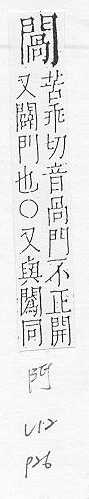 苦乖切音咼門不正開
又闢門也○又與同
門
V12
P26